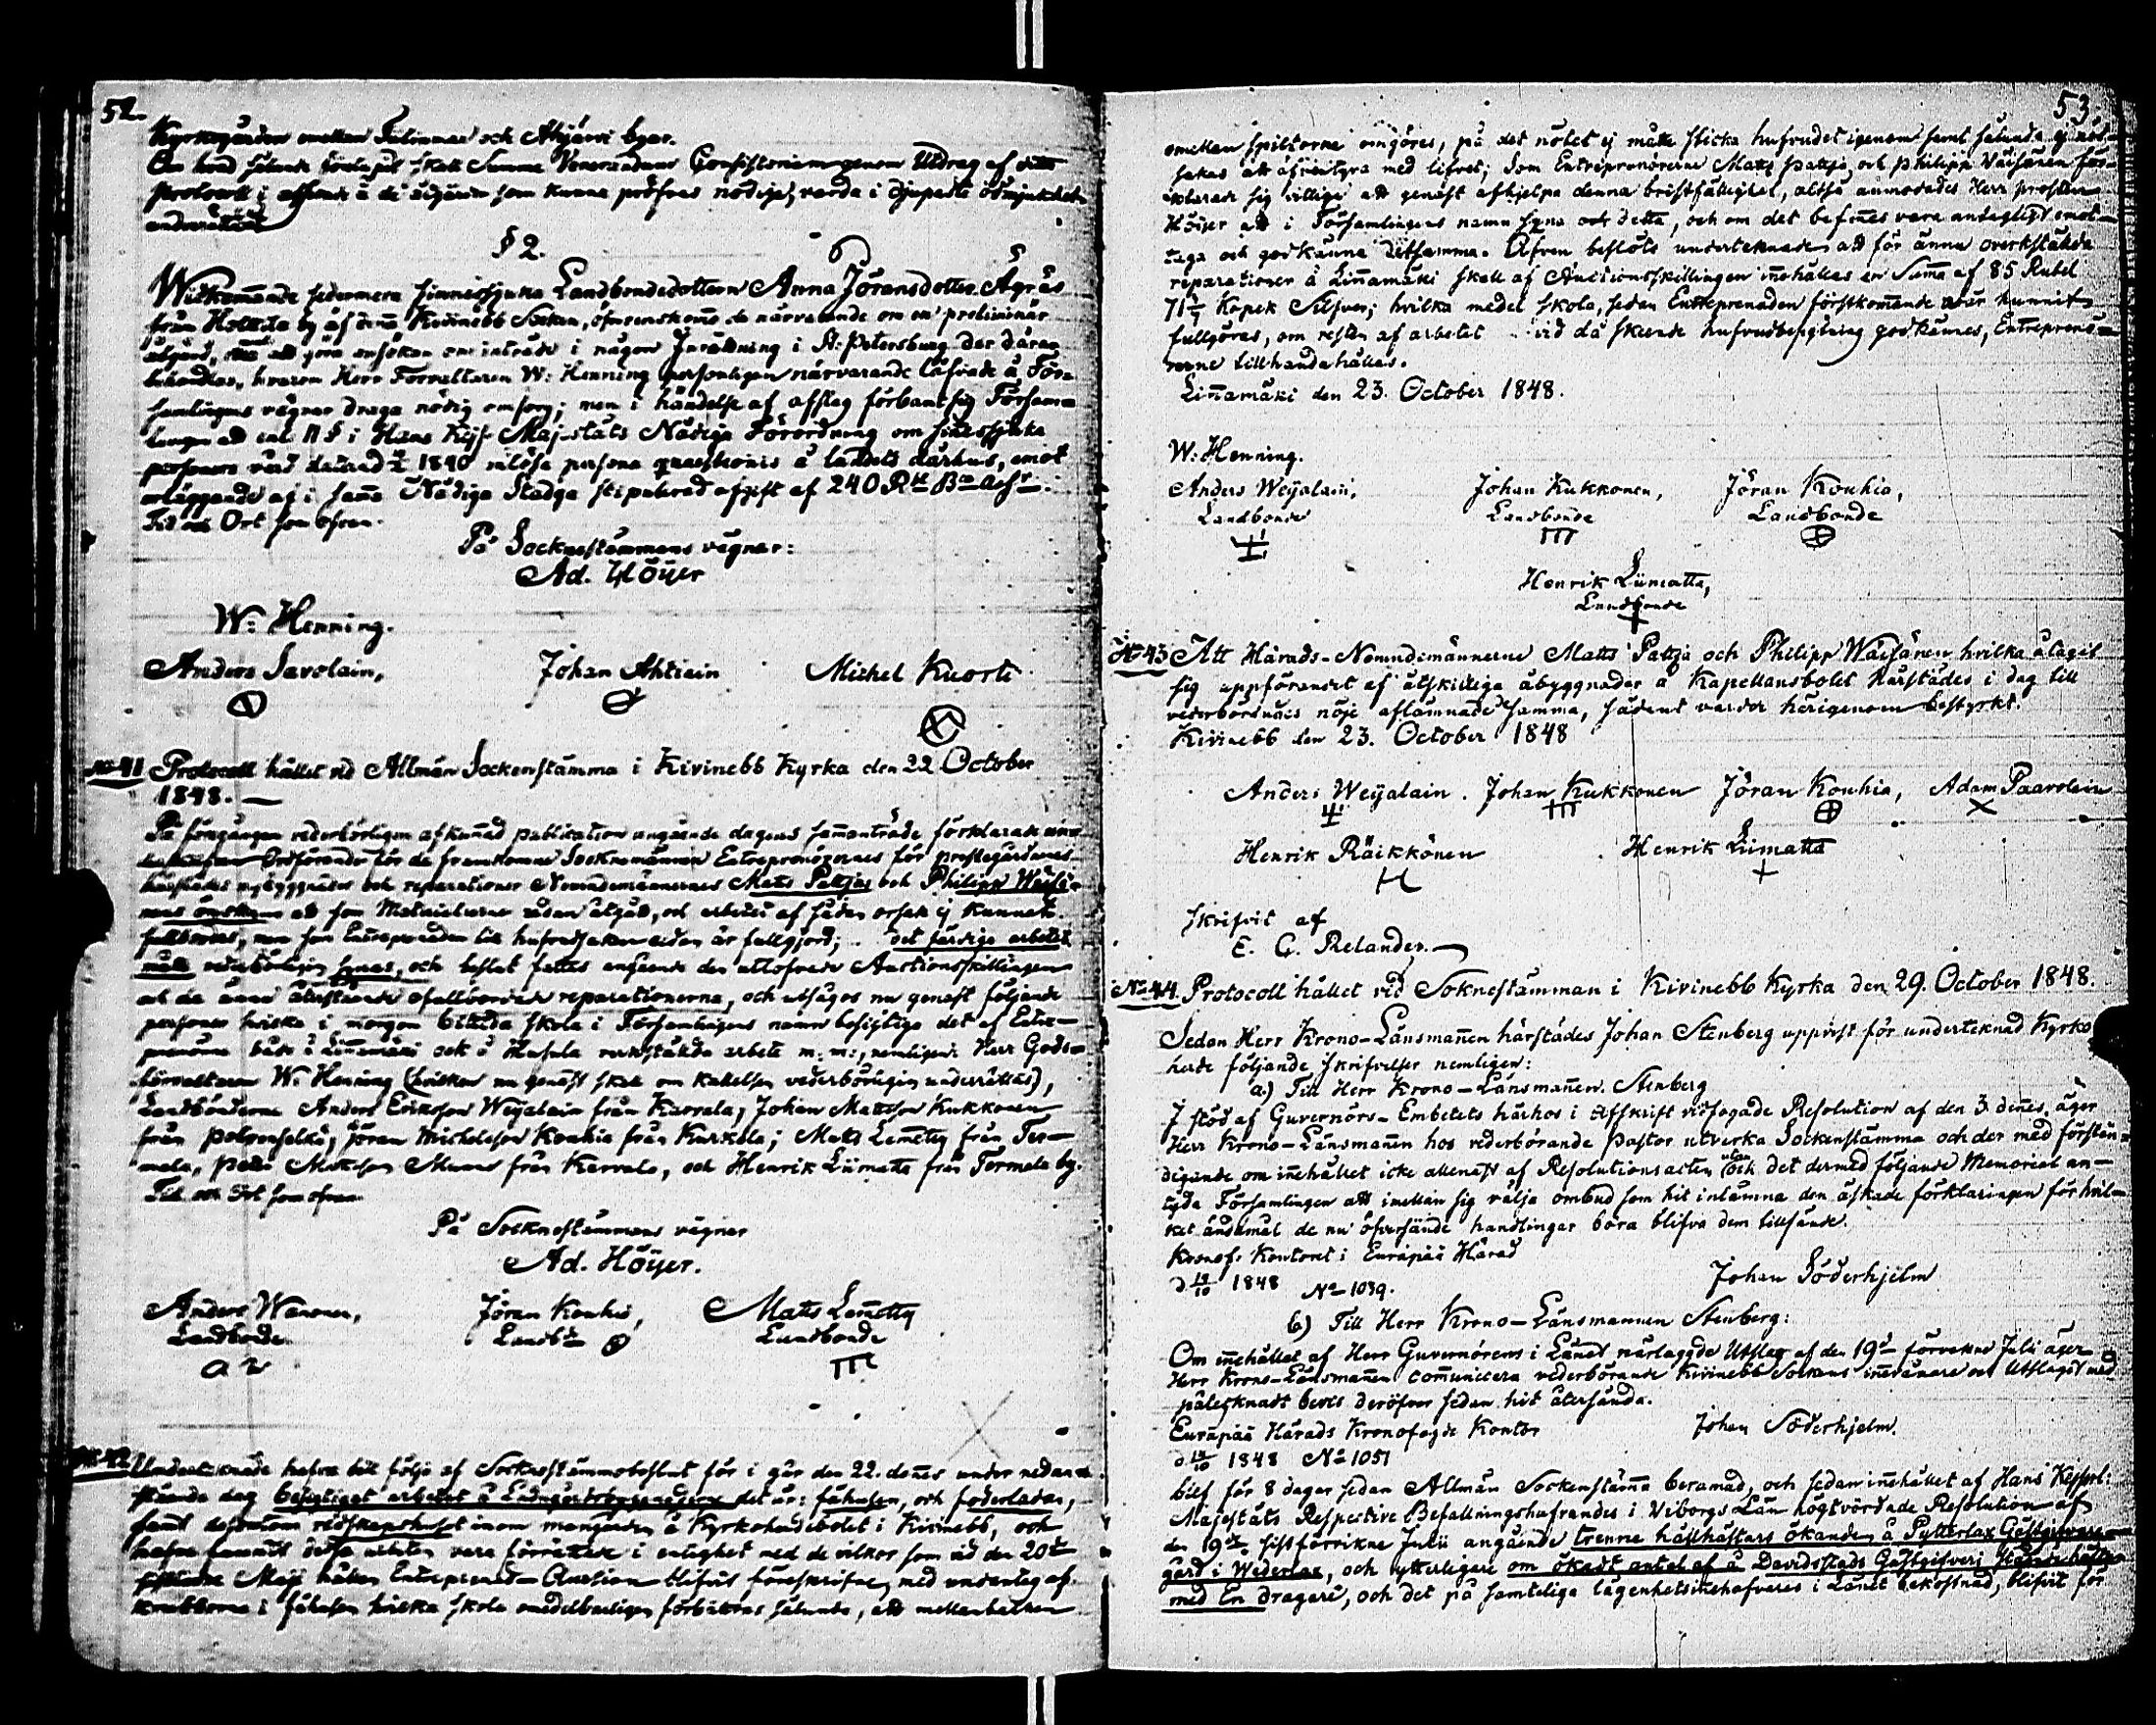 52.
Kyrkogården emellan Tulimaa och Ahijärvi byar.
Om hvad sålunda förelupit skall Summe Venerandum Consistorium genom Utdrag af detta
Protocoll i afseende å de åtgärder som kunna pröfvas nödige, varda i djupaste ödmjukhet
underrättadt
§ 2.
Widkom̄ande sedermera sinnessjuka Landbondedottern Anna Jöransdotter Ägräs
från Holttila by af denna Kivinebb Socken, öfverenskom̄o de närvarande om en preliminär
åtgärd, att göra ansökan om inträde i någon Inrättning i St. Petersburg der dårar
behandlas, hvarom Herr Forvaltaren W: Henning personligen närvarande låfvade å För-
samlingens vägnar draga nödig omsorg; men i händelse af afslag förbant sig Försam-
lingen att enl. 11 § i Hans Kejs. Majestäts Nådiga Förordning om sinnessjuka
personers vård daterad 1840 inlösa persona quaestionis å landets dårhus, emot
erläggande af i samma Nådiga Stadga stipulerad afgift af 240 Rbl Bco Assr.
Tid och Ort som ofvan.
På Socknestämmans vägnar:
Ad. Höijer
W: Henning.
Anders Savolain, Johan Ahtiain Michel Kuorti
No 41 Protocoll hållet vid Allmän Sockenstämma i Kivinebb Kyrka den 22 October
1848. —
På föregången vederbörligen afkunnad publication angående dagens sammanträde förklarade
Ordförande för de framkomne Socknemännen Entreprenörernes för prestegårdarnes
härstädes nybyggnader och reparationer Nämndemännernes Matts Pattjas och Philipp Wäisä-
nens önskan att som Materialierne redan åtgått, och arbetet af sådan orsak ej kunnat
fullbordas, men som Entreprenaden till hufvudsaken redan är fullgjord; det färdiga arbetet
måtte vederbörligen synas, och beslut fattas angående den utlofvade Auctionsskillingen
och de ännu återstående ofullbordade reparationerna, och utsågos nu genast följande
personer hvilka i morgon bittida skola i Församlingens namn besigtiga det af Entre-
prenörerne både å Linnamäki och å Hafula verkstälda arbete m: m:, nemligen: Herr Gods-
förvaltaren W. Henning (hvilken nu genast skall om kallelsen vederbörligen underrättas),
Landbönderne Anders Eriksson Weijalain från Karvala, Johan Mattsson Kukkonen
från Polvenselkä, Jöran Michelsson Kouhia från Kurkela; Matts Lemetty från Ter-
mola, Petter Mattsson Munne från Karvala, och Henrik Liimatta från Termola by.
Tid och Ort som ofvan
På Socknestämmans vägnar
Ad. Höijer.
Anders Wanonen, Jöran Kouhia, Matts Lemetty
Landbonde Landbde Landbonde
No 42 Undertecknade hafva till följe af Socknestämmobeslut för i går den 22. dennes under nedan-
stående dag besigtigat arbetet å Ladugårdsbyggnaden det är: fähusen, och foderladan,
samt dessutom redskapshuset inom mangården å Kyrkoherdebolet i Kivinebb, och
hafva funnit detta arbeten vara förrättade i enlighet med de vilkor som vid den 20de
Maji hållen Entreprenad-Auction blifvit föreskrifne, med undantag af
krubborna i fähusen hvilka skola omedelbarligen förbättras sålunda, att mellanbalken
53
emellan spiltorne omgöres, på det nötet ej måtte sticka hufvudet igenom samt sålunda ej nöd-
sakas att äfventyra med lifvet; som Entreprenörerne Matts Pattja, och Philipp Wäisänen för-
klarade sig villige att genast afhjelpa denna bristfällighet, altså anmodades Herr prosten
Höijer att i Församlingens namn syna och detta, och om det befinnes vara antagligt emot-
taga och godkänna detsamma. Äfven beslöts undertecknade att för ännu overkstälda
reparationer å Linnamäki skall af Auctionsskillingen innehållas en Summa af 85 Rubel
71 ½ Kopek Silfver; hvilka medel skola, sedan Entreprenaden förstkommande vår hunnit
fullgöras, om resten af arbetet vid då skeende hufvudbesigtning godkännes, Entreprenö-
rerne tillhandahållas.
Linnamäki den 23. October 1848.
W: Henning.
Anders Weijalain, Johan Kukkonen, Jöran Kouhia,
Landbonde Landbonde Landbonde
Henrik Liimatta,
Landbonde
No 43 Att Härads-Nämndemännerne Matts Pattja och Philipp Wäisänen, hvilka åtagit
sig uppförandet af åtskillige åbyggnader å Kapellansbolet härstädes i dag till
vederbörandes nöje aflämnade desamma, sådant varder härigenom bestyrkt.
Kivinebb den 23. October 1848
Anders Weijalain. Johan Kukkonen Jöran Kouhia, Adam Paavolain
Henrik Räikkönen Henrik Liimatta
skrifvit af
E. G. Relander.
No 44. Protocoll hållet vid Soknestämman i Kivinebb Kyrka den 29. October 1848.
Sedan Herr Krono-Länsmannen härstädes Johan Stenberg uppvist för undertecknad Kyrko-
herde följande skrifvelser nemligen:
a) Till Herr Krono-Länsmannen Stenberg
I stöd af Guvernörs-Embetets härhos i Affskrift vidfogade Resolution af den 3. dennes, äger
Herr Krono-Länsmannen hos vederbörande Pastor utverka Sockenstämma och der med förstän-
digande om innehållet icke allenast af Resolutionsacten utan och det dermed följande Memorial an-
tyda Församlingen att imellan sig välja ombud som hit inlämna den äskade förklaringen för hvil-
ket ändamål de nu öfversände handlingar böra blifva dem tillsände.
Kronof: Kontoret i Euräpää Härad
d 19/10 1848 No 1039. Johan Söderhjelm
b) Till Herr Krono-Länsmannen Stenberg:
Om innehållet af Herr Guvernörens i Länet närlagde Utslag af den 19de förvekne Juli äger
Herr Krono-Länsmannen communicera vederbörande Kivinebb Sockens innevånare och Utslaget med
påtecknadt bevis deröfver sedan hit återsända.
Euräpää Härads Kronofogde Kontor Johan Söderhjelm.
d 19/10 1848 No 1051
blef för 8 dagar sedan Allmän Sockenstämma beramad, och sedan innehållet af Hans Kejserl:
Majestäts Respective Befallningshafvandes i Viborgs Län högtvördade Resolution af
den 19de sistförvikne Julii angående trenne hållhästars ökanden å Pytterlax Gästgifvare-
gård i Wederlax, och ytterligare om ökadt antal af å Davidsstads Gästgifveri
med En dragare, och det på samtelige lägenhetsinnehafvares i Länet bekostnad, blifvit för